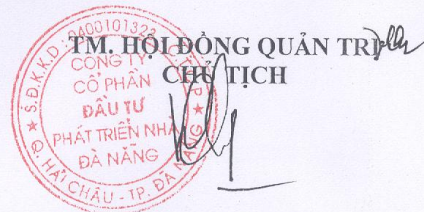 TM. HỘI ĐỒNG QUẢN TRỊ
CHỦ TỊCH
S.Đ.K.K.D: 0400101323
CÔNG TY
CỔ PHẦN
ĐẦU TƯ
PHÁT TRIỂN NHÀ
ĐÀ NẴNG
Q. HẢI CHÂU - TP. ĐÀ NẴNG